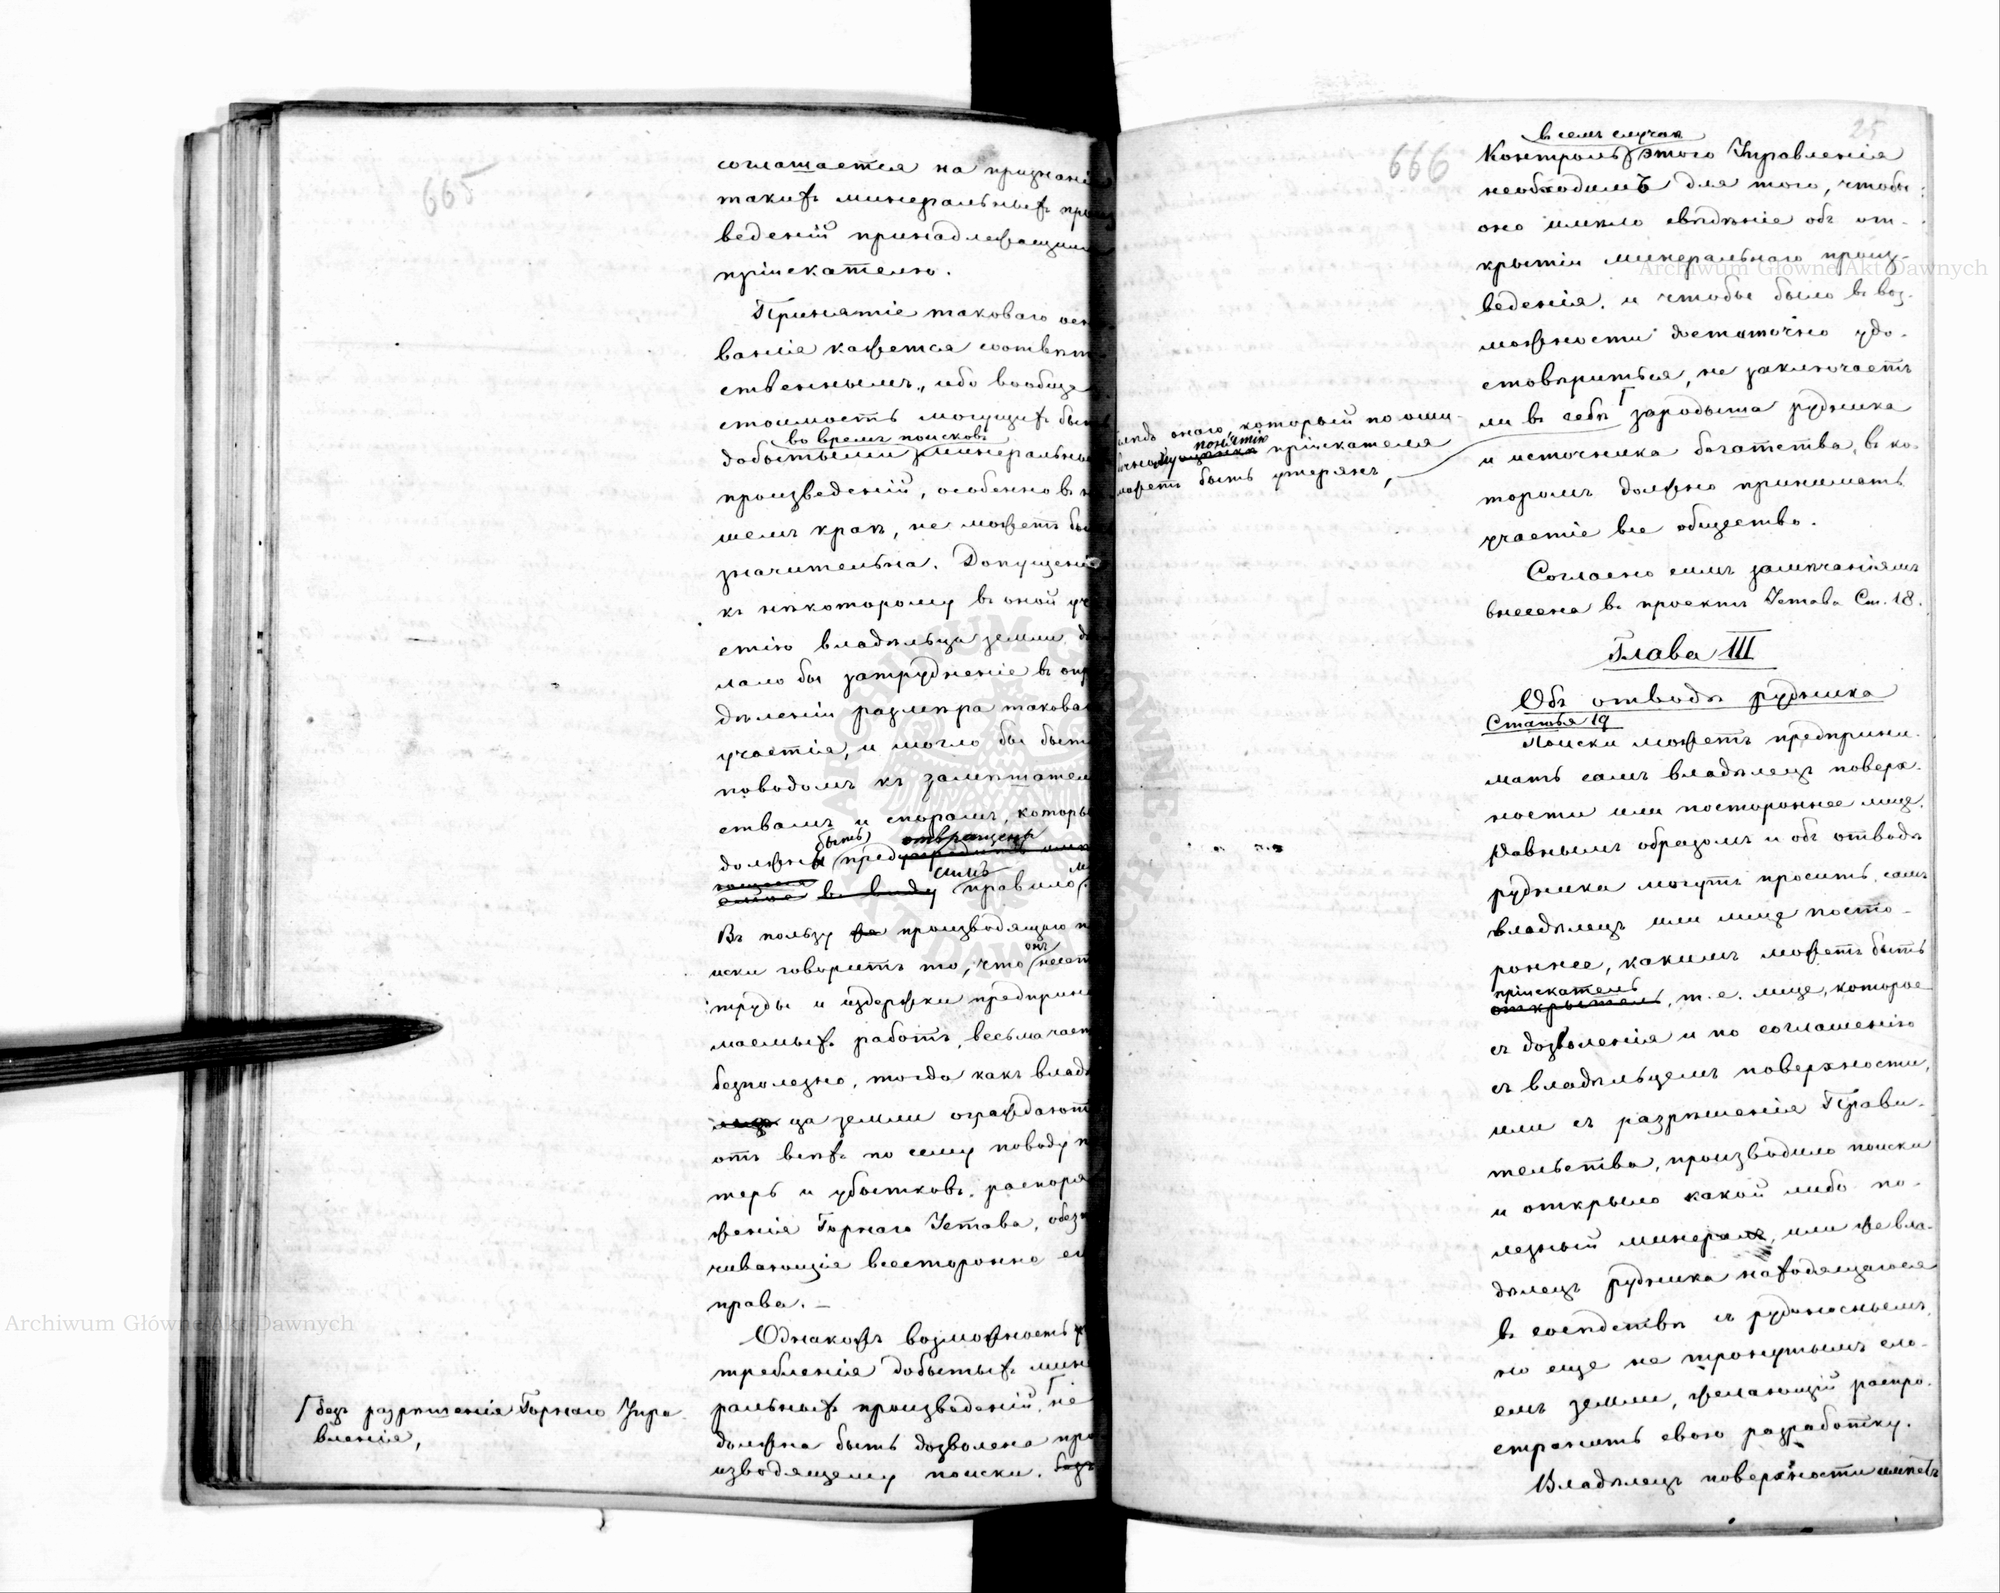 665
соглашается на признаніе
такихъ минеральныхъ прои
ведений принадлежащими
пріискателю.
Принятіе таковаго осно
ванія кажется соотвѣт
ственнымъ, ибо вообще
стоимость могущихъ быть
во время поисковъ
добытыми минеральныхъ
произведеній, особенно въ на
шемъ краѣ, не можетъ быть
значительна. Допущеніе
къ нѣкоторому въ оной уча
стію владѣльца земли дѣ
лало бы затрудненіе въ опре
дѣленіи размѣра таковаго
участія, и могло бы быть
поводомъ къ замѣшатель
ствамъ и спорамъ, которые
быть отвращены
должны
симъ
въ виду правило
Въ пользу производящаго по
иски говоритъ то, что онъ несетъ
труды и издержки предприни
маемыхъ работъ, весьма часто
безполезно, тогда какъ владѣ
ца земли ограждаютъ
отъ всѣхъ по сему поводу по
терь и убытковъ, распоря
женія Горнаго Устава, обезпе
чивающія всесторонно его
права. —
Однакожъ возможность упо
требленія добытыхъ мине
ральныхъ произведеній, не
должна быть дозволена про
изводящему поиски. безъ
безъ разрѣшенія Горнаго Упра
вленія,
666
25
въ семъ случаѣ
Контроль этого Управленія
необходимъ для того, чтобы
оно имѣло свѣдѣніе объ от-
крытіи минеральнаго произ-
веденія, и чтобы было въ воз-
можности достаточно удо-
стовѣриться, не заключаетъ
ли въ себѣ зародыша рудника
и источника богатства, въ ко-
торомъ должно принимать
участіе все общество.
онаго, который по оши-
понятію
пріискателя
можетъ быть утерянъ,
Согласно симъ замѣчаніямъ
внесена въ проектъ Устава Ст. 18.
Глава III
Объ отводѣ рудника
Статья 19
Поиски можетъ предприни-
мать самъ владѣлецъ поверх-
ности или постороннее лице.
Равнымъ образомъ и объ отводѣ
рудника могутъ просить, самъ
владѣлецъ или лице посто-
роннее, какимъ можетъ быть
пріискатель
открытель, т. е. лице, которое
съ дозволенія и по соглашенію
съ владѣльцемъ поверхности,
или съ разрѣшенія Прави-
тельства, производило поиски
и открыло какой либо по-
лезный минералъ, или же вла-
дѣлецъ рудника находящагося
въ сосѣдствѣ съ рудоноснымъ,
но еще не тронутымъ сло-
емъ земли, желающій распро-
странить свою разработку.
Владѣлецъ поверхности имѣетъ
Archiwum Główne Akt Dawnych
Archiwum Główne Akt Dawnych
ARCHIWUM GŁÓWNE AKT DAWNYCH